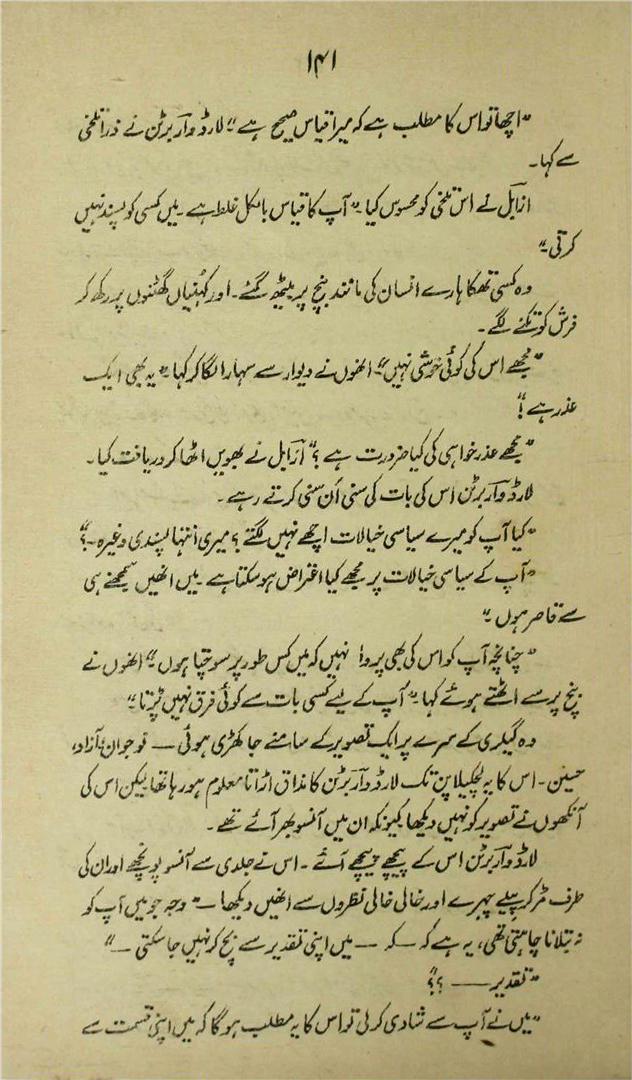 ۱۴۱
"اچھا تو اس کا مطلب ہے کہ میرا قیاس صحیح ہے" لارڈ وآربرٹن نے ذرا تلخی
سے کہا۔
ازابل نے اس تلخی کو محسوس کیا۔ "آپ کا قیاس بالکل غلط ہے۔ میں کسی کو پسند نہیں
کرتی۔"
وہ کسی تھکا ہارے انسان کی مانند بنچ پر بیٹھ گئے۔ اور کہنیاں گھٹنوں پر رکھ کر
فرش کو تکنے لگے۔
"مجھے اس کی کوئی خوشی نہیں" انھوں نے دیوار سے سہارا لگا کر کہا "یہ بھی ایک
عذر ہے!"
"مجھے عذر خواہی کی کیا ضرورت ہے؟" ازابل نے بھویں اٹھا کر دریافت کیا۔
لارڈ وآربرٹن اس کی بات کی سنی اَن سنی کرتے رہے۔
"کیا آپ کو میرے سیاسی خیالات اچھے نہیں لگتے؟ میری انتہا پسندی وغیرہ۔؟"
"آپ کے سیاسی خیالات پر مجھے کیا اعتراض ہو سکتا ہے۔ میں انھیں سمجھنے ہی
سے قاصر ہوں۔"
"چنانچہ آپ کو اس کی بھی پروا نہیں کہ میں کس طور پر سوچتا ہوں۔" انھوں نے
بنچ پر سے اٹھتے ہوئے کہا۔ "آپ کے لیے کسی بات سے کوئی فرق نہیں پڑتا"
وہ گیلری کے سرے پر ایک تصویر کے سامنے جا کھڑی ہوئی — نوجوان، آزاد،
حسین۔ اس کا یہ لچکیلا پن تک لارڈ وآربرٹن کا مذاق اڑاتا معلوم ہو رہا تھا لیکن اس کی
آنکھوں نے تصویر کو نہیں دیکھا کیونکہ ان میں آنسو بھر آئے تھے۔
لارڈ وآربرٹن اس کے پیچھے پیچھے آئے۔ اس نے جلدی سے آنسو پونچھے اور ان کی
طرف مڑ کر پیلے چہرے اور خالی خالی نظروں سے انھیں دیکھا — "وجہ جو میں آپ کو
نہ بتلانا چاہتی تھی، یہ ہے کہ — کہ — میں اپنی تقدیر سے بچ کر نہیں جا سکتی —"
"تقدیر —— ؟؟"
"میں نے آپ سے شادی کر لی تو اس کا یہ مطلب ہو گا کہ میں اپنی قسمت سے